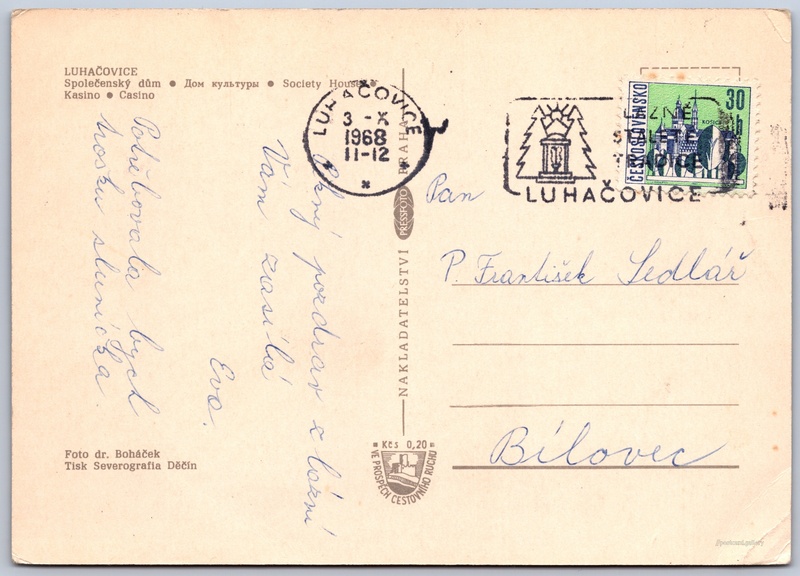 LUHAČOVICE
Společenský dům ● Дом культуры ● Society House ●
Kasino ● Casino
Potřebovala bych
trošku sluníčka.
Pěkný pozdrav z lázní
Vám zasílá
Eva.
Foto dr. Boháček
Tisk Severografia Děčín
NAKLADATELSTVÍ PRESSFOTO PRAHA
Kčs 0,20
VE PROSPĚCH CESTOVNÍHO RUCHU
LUHAČOVICE
3 -X
1968
11-12
LÁZNĚ
STALETÉ
TRADICE
LUHAČOVICE
ČESKOSLOVENSKO
30 h
KOŠICE
Pan
P. František Sedlář
Bílovec